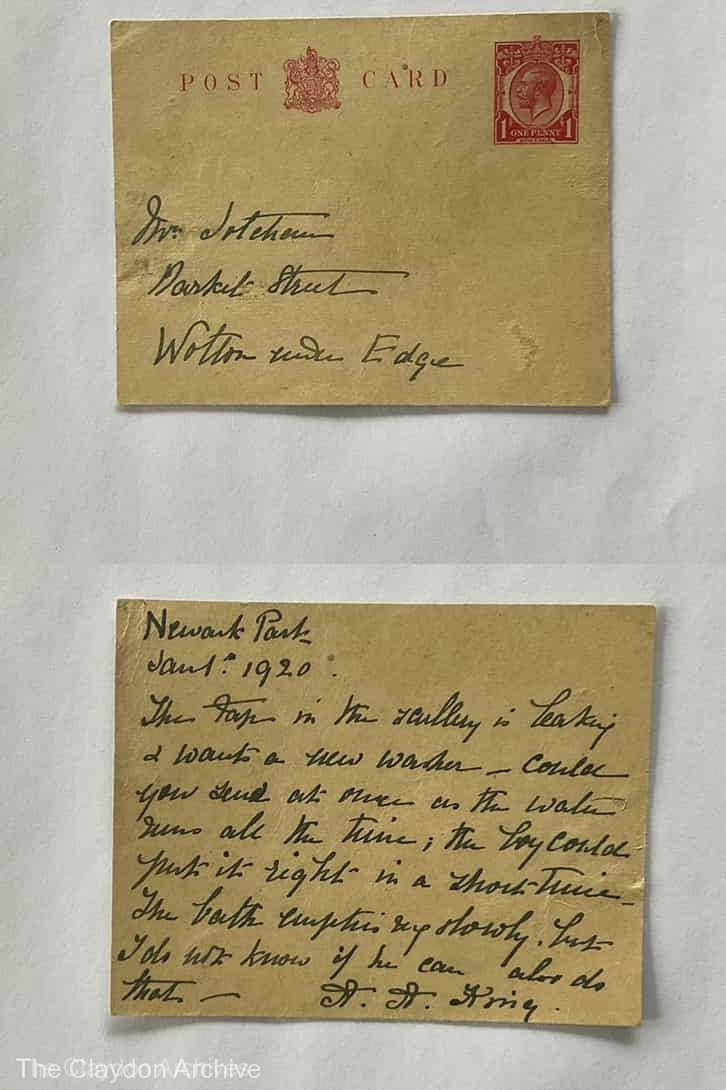 POST CARD
1 ONE PENNY 1
Mr. Jotcham
Market Street
Wotton under Edge
Newark Park
Jan 1st 1920.
The tap in the scullery is leaking
& wants a new washer - could
you send at once as the water
runs all the time; the boy could
put it right in a short time -
The bath empties very slowly, but
I do not know if he can also do
that - King.
The Claydon Archive